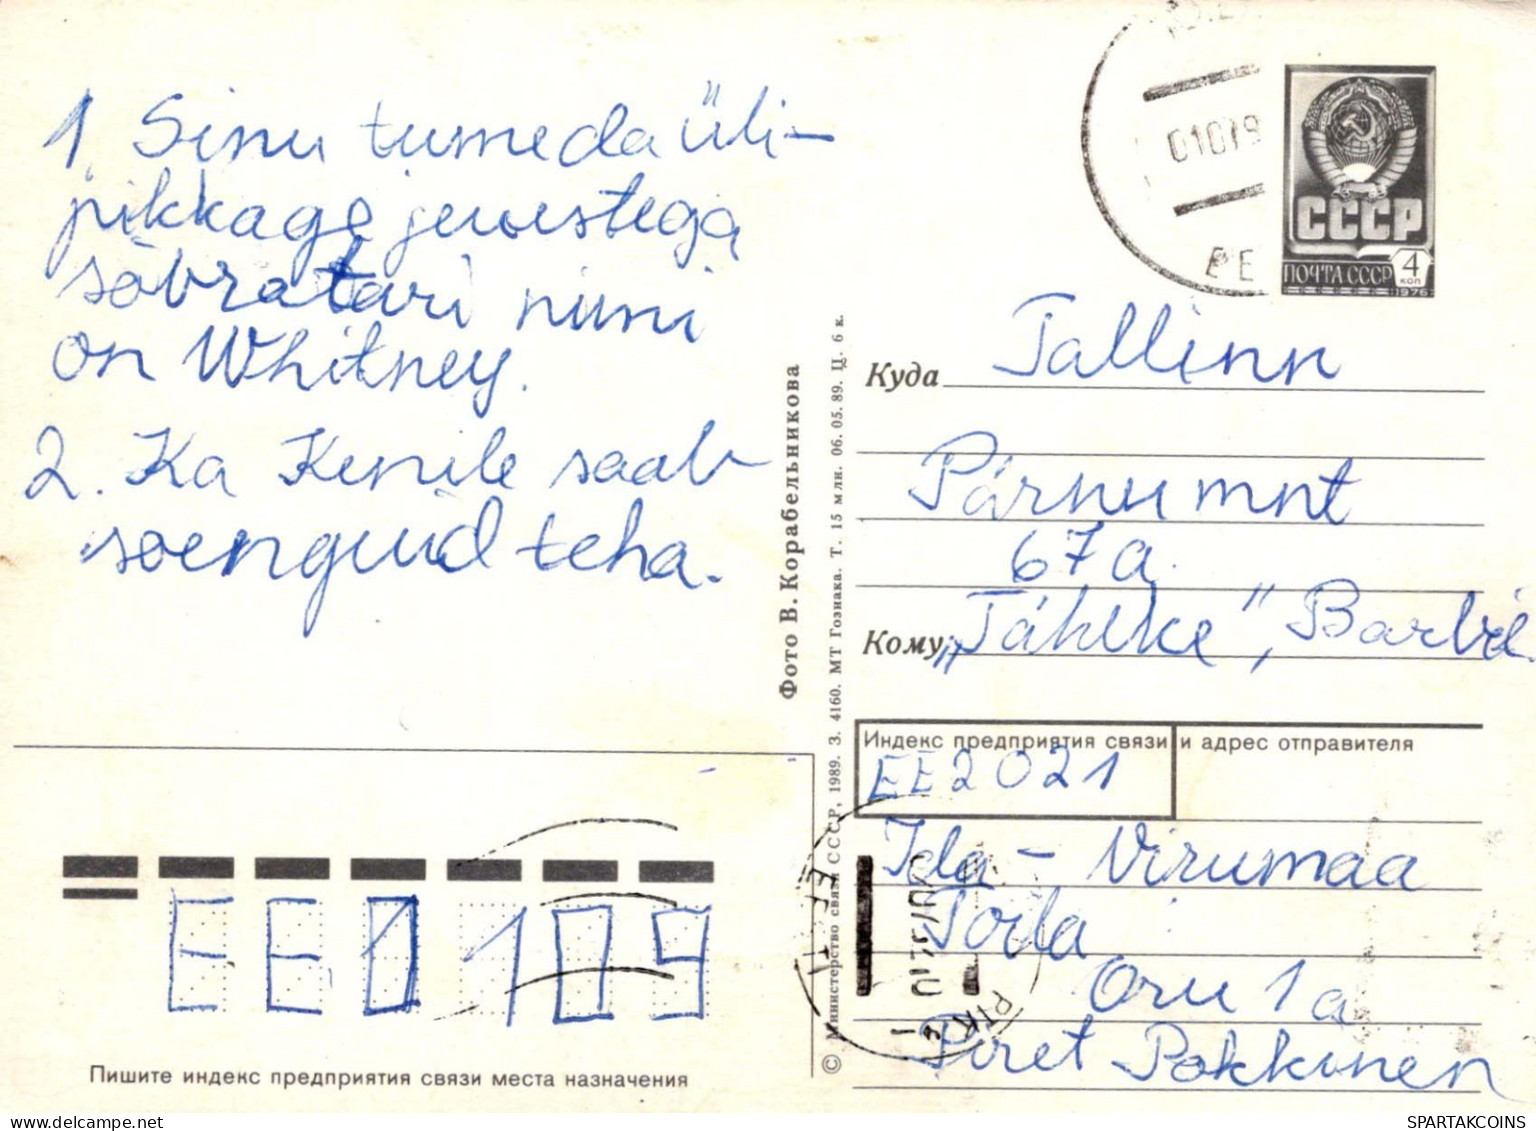 1. Sinu tumeda üli-
pikkage juustega
sõbratari nimi
on Whitney.
2. Ka Kenile saab
soenguid teha.
Фото В. Корабельникова
© Министерство связи СССР, 1989. З. 4160. МТ Гознака. Т. 15 млн. 06.05.89. Ц. 6 к.
010
СССР
ПОЧТА СССР
4
коп
1976
Куда Tallinn
Pärnu mnt
67a
Кому „Täheke”, Barbie
Индекс предприятия связи и адрес отправителя
EE2021
Ida-Virumaa
Toila
Oru 1a
Piret Pokkinen
EE0109
Пишите индекс предприятия связи места назначения
SPARTAKCOINS
delcampe.net